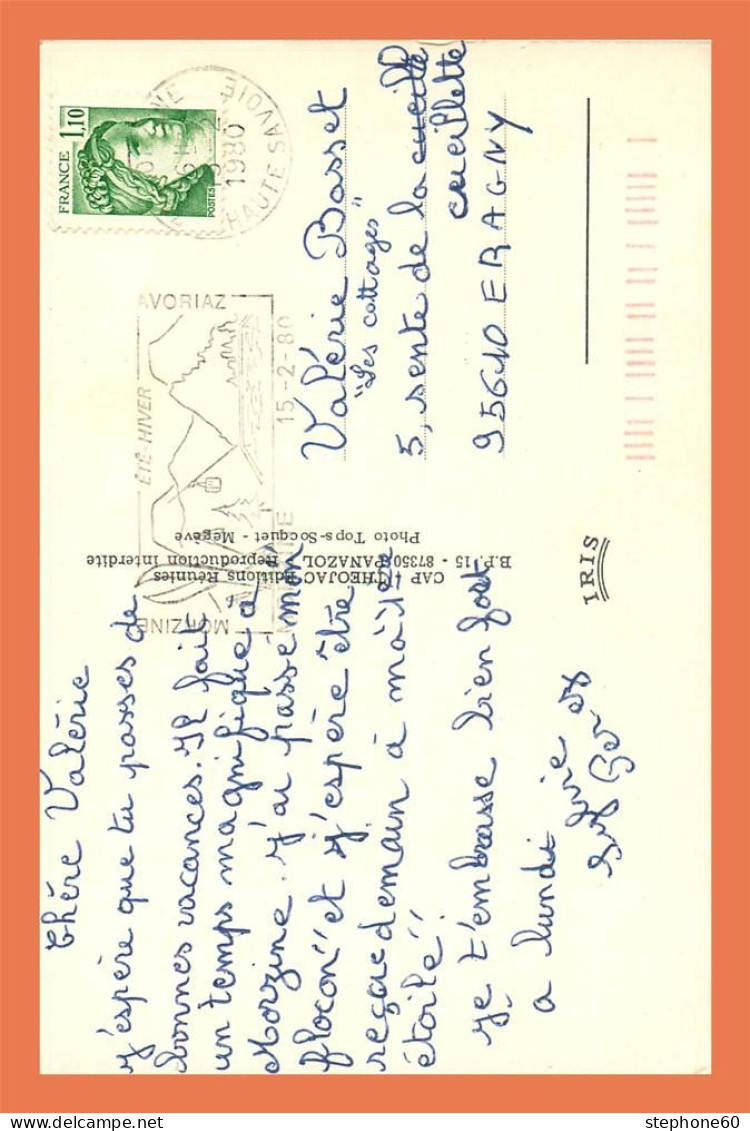 Chère Valérie
J'espère que tu passes de
bonnes vacances. Il fait
un temps magnifique a
Morzine. J'ai passé mon
flocon" et j'espère être
reçue demain à ma "1ère
étoile".
Je t'embrasse bien fort
a lundi
CAP - THEOJAC Editions Réunies
B.P. 15 - 87350 PANAZOL Reproduction Interdite
Photo Tops-Socquet - Megève
IRIS
FRANCE 1,10
POSTES
1980
HAUTE SAVOIE
AVORIAZ
ÉTÉ-HIVER
MORZINE
15-2-80
Valérie Basset
"Les cottages"
5, sente de la cueille
cueillette
95610 ERAGNY
stephone60